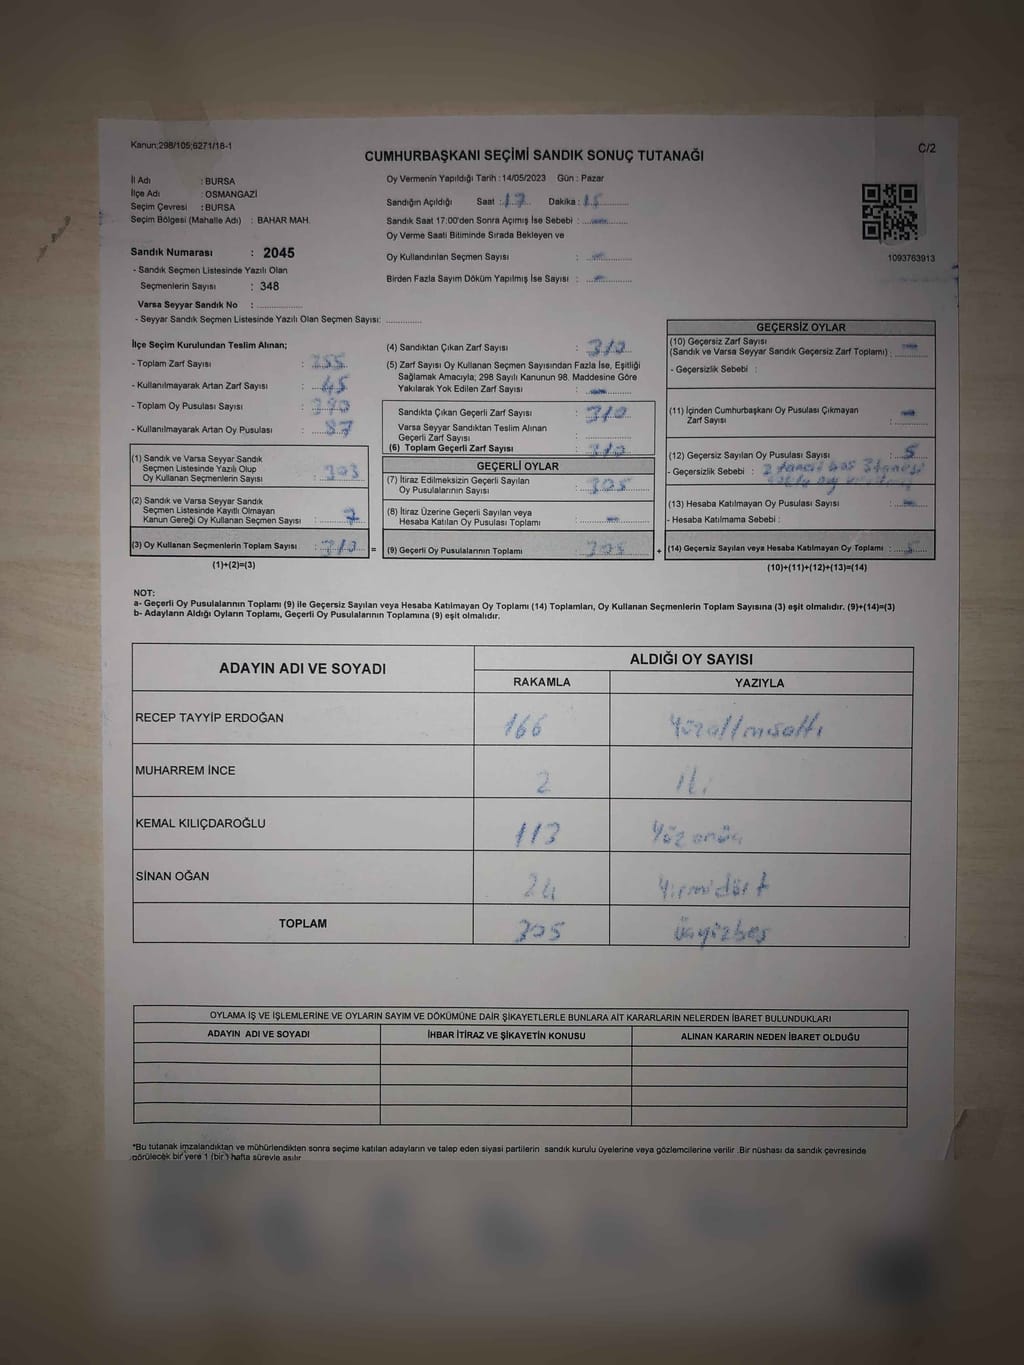 Kanun;298/105;6271/18-1
C/2
CUMHURBAŞKANI SEÇİMİ SANDIK SONUÇ TUTANAĞI
İl Adı : BURSA
İlçe Adı : OSMANGAZİ
Seçim Çevresi : BURSA
Seçim Bölgesi (Mahalle Adı) : BAHAR MAH.
Sandık Numarası : 2045
- Sandık Seçmen Listesinde Yazılı Olan
Seçmenlerin Sayısı : 348
Varsa Seyyar Sandık No :
- Seyyar Sandık Seçmen Listesinde Yazılı Olan Seçmen Sayısı:
Oy Vermenin Yapıldığı Tarih : 14/05/2023 Gün : Pazar
Sandığın Açıldığı Saat : 17 Dakika : 15
Sandık Saat 17:00'den Sonra Açımış İse Sebebi : -
Oy Verme Saati Bitiminde Sırada Bekleyen ve
Oy Kullandırılan Seçmen Sayısı : -
Birden Fazla Sayım Döküm Yapılmış İse Sayısı : -
1093763913
İlçe Seçim Kurulundan Teslim Alınan;
- Toplam Zarf Sayısı :
- Kullanılmayarak Artan Zarf Sayısı : 45
- Toplam Oy Pusulası Sayısı :
- Kullanılmayarak Artan Oy Pusulası : 87
(1) Sandık ve Varsa Seyyar Sandık
Seçmen Listesinde Yazılı Olup
Oy Kullanan Seçmenlerin Sayısı : 303
(2) Sandık ve Varsa Seyyar Sandık
Seçmen Listesinde Kayıtlı Olmayan
Kanun Gereği Oy Kullanan Seçmen Sayısı : 7
(3) Oy Kullanan Seçmenlerin Toplam Sayısı : 310 =
(1)+(2)=(3)
(4) Sandıktan Çıkan Zarf Sayısı : 310
(5) Zarf Sayısı Oy Kullanan Seçmen Sayısından Fazla İse, Eşitliği
Sağlamak Amacıyla; 298 Sayılı Kanunun 98. Maddesine Göre
Yakılarak Yok Edilen Zarf Sayısı : -
Sandıkta Çıkan Geçerli Zarf Sayısı : 310
Varsa Seyyar Sandıktan Teslim Alınan
Geçerli Zarf Sayısı :
(6) Toplam Geçerli Zarf Sayısı : 310
GEÇERLİ OYLAR
(7) İtiraz Edilmeksizin Geçerli Sayılan
Oy Pusulalarının Sayısı : 305
(8) İtiraz Üzerine Geçerli Sayılan veya
Hesaba Katılan Oy Pusulası Toplamı : -
(9) Geçerli Oy Pusulalarının Toplamı : 305 +
GEÇERSİZ OYLAR
(10) Geçersiz Zarf Sayısı
(Sandık ve Varsa Seyyar Sandık Geçersiz Zarf Toplamı) : -
- Geçersizlik Sebebi :
(11) İçinden Cumhurbaşkanı Oy Pusulası Çıkmayan
Zarf Sayısı : -
(12) Geçersiz Sayılan Oy Pusulası Sayısı : 5
- Geçersizlik Sebebi : 2 tanesi boş 3 tanesi
(13) Hesaba Katılmayan Oy Pusulası Sayısı : -
- Hesaba Katılmama Sebebi :
(14) Geçersiz Sayılan veya Hesaba Katılmayan Oy Toplamı : 5
(10)+(11)+(12)+(13)=(14)
NOT:
a- Geçerli Oy Pusulalarının Toplamı (9) ile Geçersiz Sayılan veya Hesaba Katılmayan Oy Toplamı (14) Toplamları, Oy Kullanan Seçmenlerin Toplam Sayısına (3) eşit olmalıdır. (9)+(14)=(3)
b- Adayların Aldığı Oyların Toplamı, Geçerli Oy Pusulalarının Toplamına (9) eşit olmalıdır.
ADAYIN ADI VE SOYADI
ALDIĞI OY SAYISI
RAKAMLA YAZIYLA
RECEP TAYYİP ERDOĞAN 166 Yüzaltmışaltı
MUHARREM İNCE 2 iki
KEMAL KILIÇDAROĞLU 113 Yüz onüç
SİNAN OĞAN 24 Yirmidört
TOPLAM 305 Üçyüzbeş
OYLAMA İŞ VE İŞLEMLERİNE VE OYLARIN SAYIM VE DÖKÜMÜNE DAİR ŞİKAYETLERLE BUNLARA AİT KARARLARIN NELERDEN İBARET BULUNDUKLARI
ADAYIN ADI VE SOYADI İHBAR İTİRAZ VE ŞİKAYETİN KONUSU ALINAN KARARIN NEDEN İBARET OLDUĞU
*Bu tutanak imzalandıktan ve mühürlendikten sonra seçime katılan adayların ve talep eden siyasi partilerin sandık kurulu üyelerine veya gözlemcilerine verilir .Bir nüshası da sandık çevresinde
görülecek bir yere 1 (bir) hafta süreyle asılır